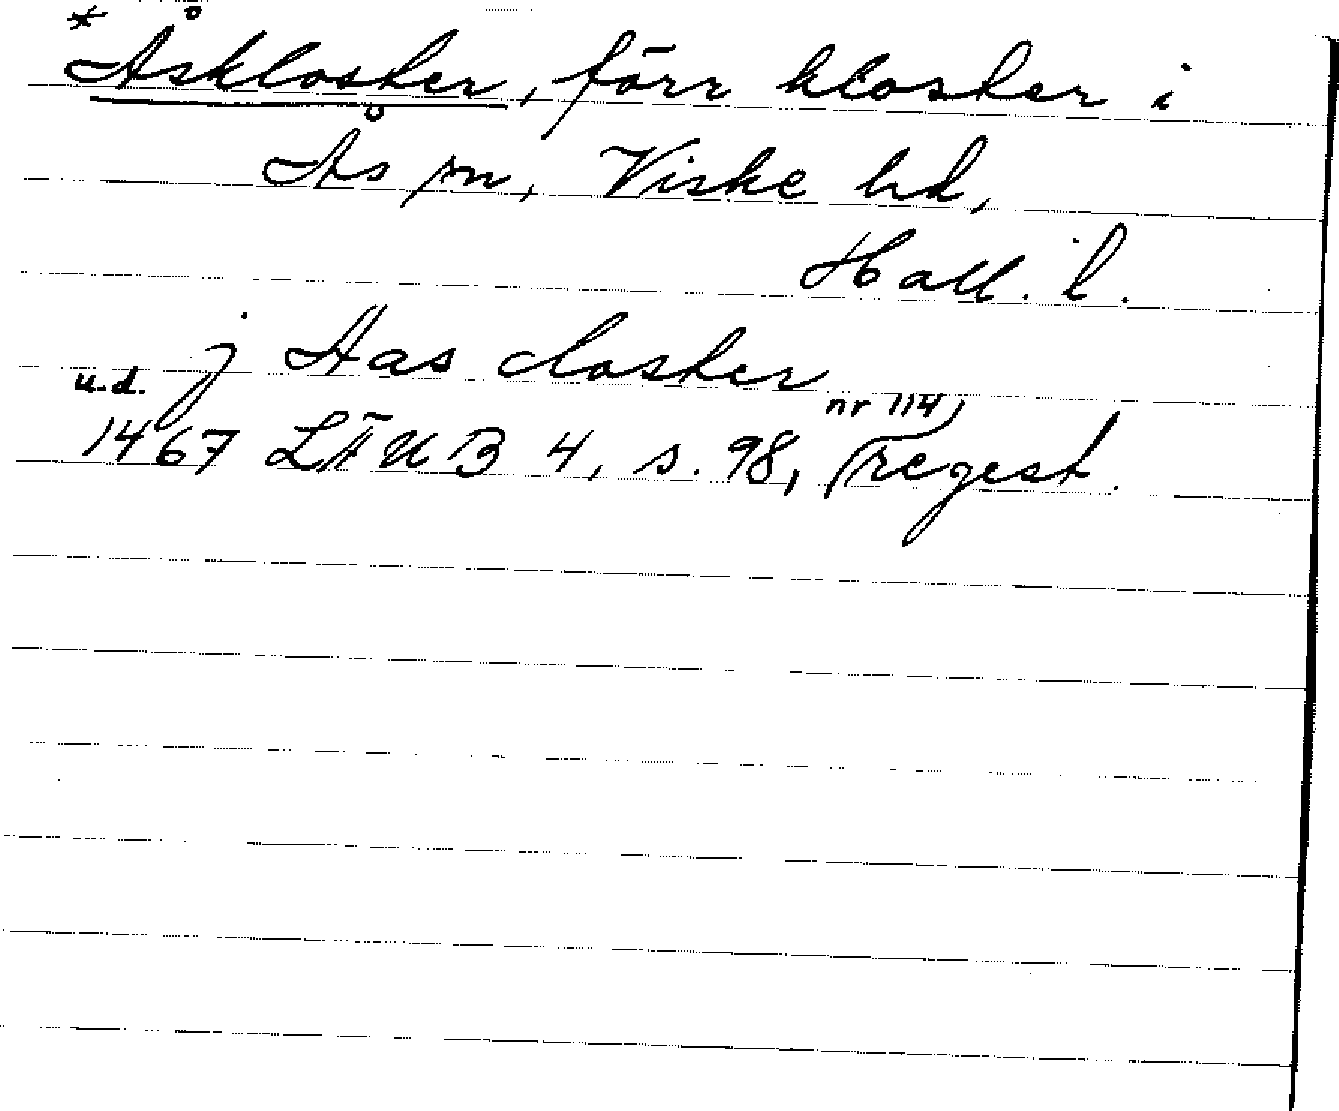 * Åskloster, förr kloster i
Ås sn, Viske hd,
Hall. l.
j Aas closter
u.d.
1467 LÄUB 4, s. 98, nr 114, regest.